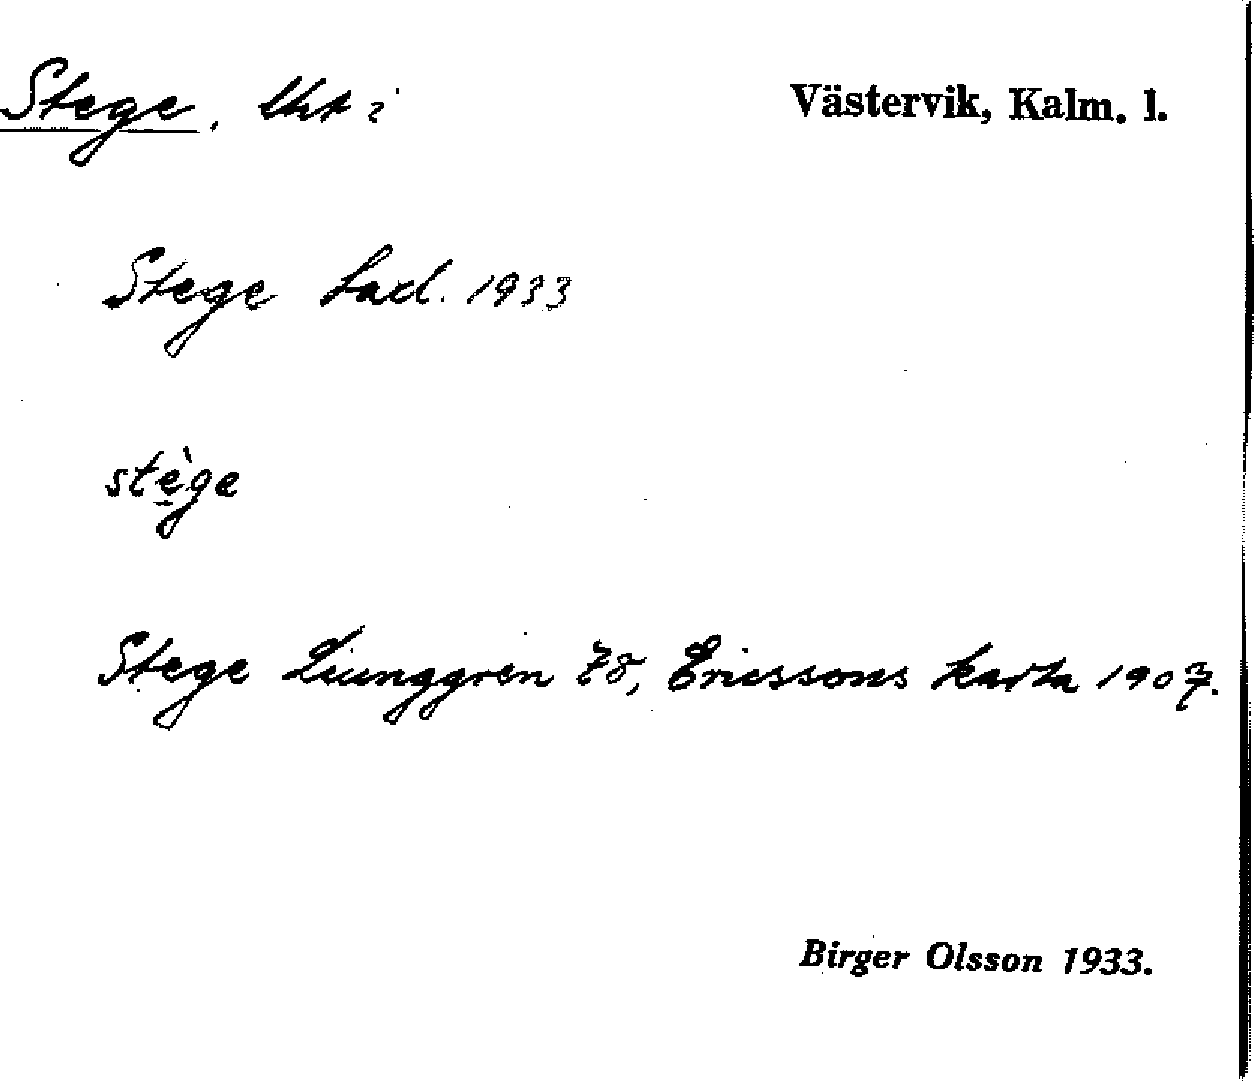 Stege, Ukt i Västervik, Kalm. l.
Stege Lad. 1933
stè̱ge
Stege Liunggren 78, Ericssons karta 1907.
Birger Olsson 1933.